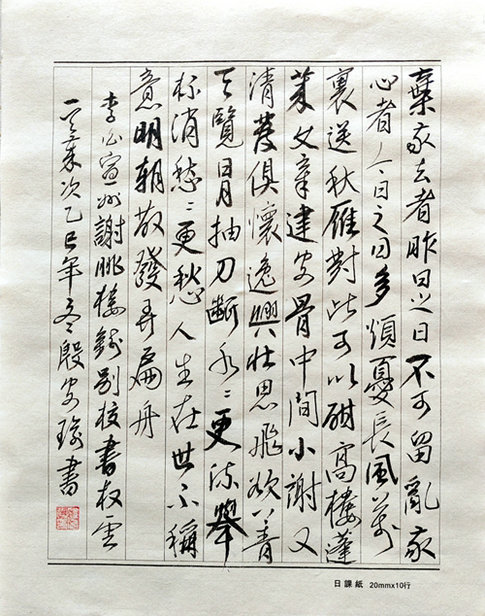 棄我去者昨日之日不可留亂我
心者今日之日多煩憂長風萬
裏送秋雁對此可以酣高樓蓬
萊文章建安骨中間小謝又
清發俱懷逸興壯思飛欲上青
天覽日月抽刀斷水〻更流舉
杯消愁〻更愁人生在世不稱
意明朝散發弄扁舟
李白宣州謝朓樓餞別校書叔雲
一歲次乙巳年冬殷安書
日課紙 20mmx10行